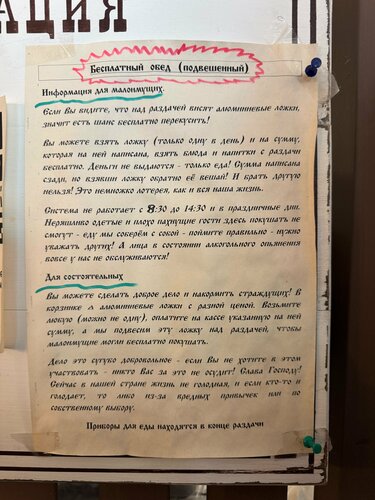 АЦИЯ
Бесплатный обед (подвешенный)
Информация для малоимущих.
Если Вы видите, что над раздачей висят алюминиевые ложки,
значит есть шанс бесплатно перекусить!
Вы можете взять ложку (только одну в день) и на сумму,
которая на ней написана, взять блюда и напитки с раздачи
бесплатно. Деньги не выдаются - только еда! Сумма написана
сзади, но взявши ложку обратно её вешай! И брать другую
нельзя! Это немножко лотерея, как и вся наша жизнь.
Система не работает с 8:30 до 14:30 и в праздничные дни.
Неряшливо одетые и плохо пахнущие гости здесь покушать не
смогут - еду мы соберём с собой - поймите правильно - нужно
уважать других! А лица в состоянии алкогольного опьянения
вовсе у нас не обслуживаются!
Для состоятельных
Вы можете сделать доброе дело и накормить страждущих! В
корзинке л алюминиевые ложки с разной ценой. Возьмите
любую (можно не одну), оплатите на кассе указанную на ней
сумму, а мы подвесим эту ложку над раздачей, чтобы
малоимущие могли бесплатно покушать.
Дело это сугубо добровольное - если Вы не хотите в этом
участвовать - никто Вас за это не осудит! Слава Господу!
Сейчас в нашей стране жизнь не голодная, и если кто-то и
голодает, то либо из-за вредных привычек или по
собственному выбору.
Приборы для еды находятся в конце раздачи